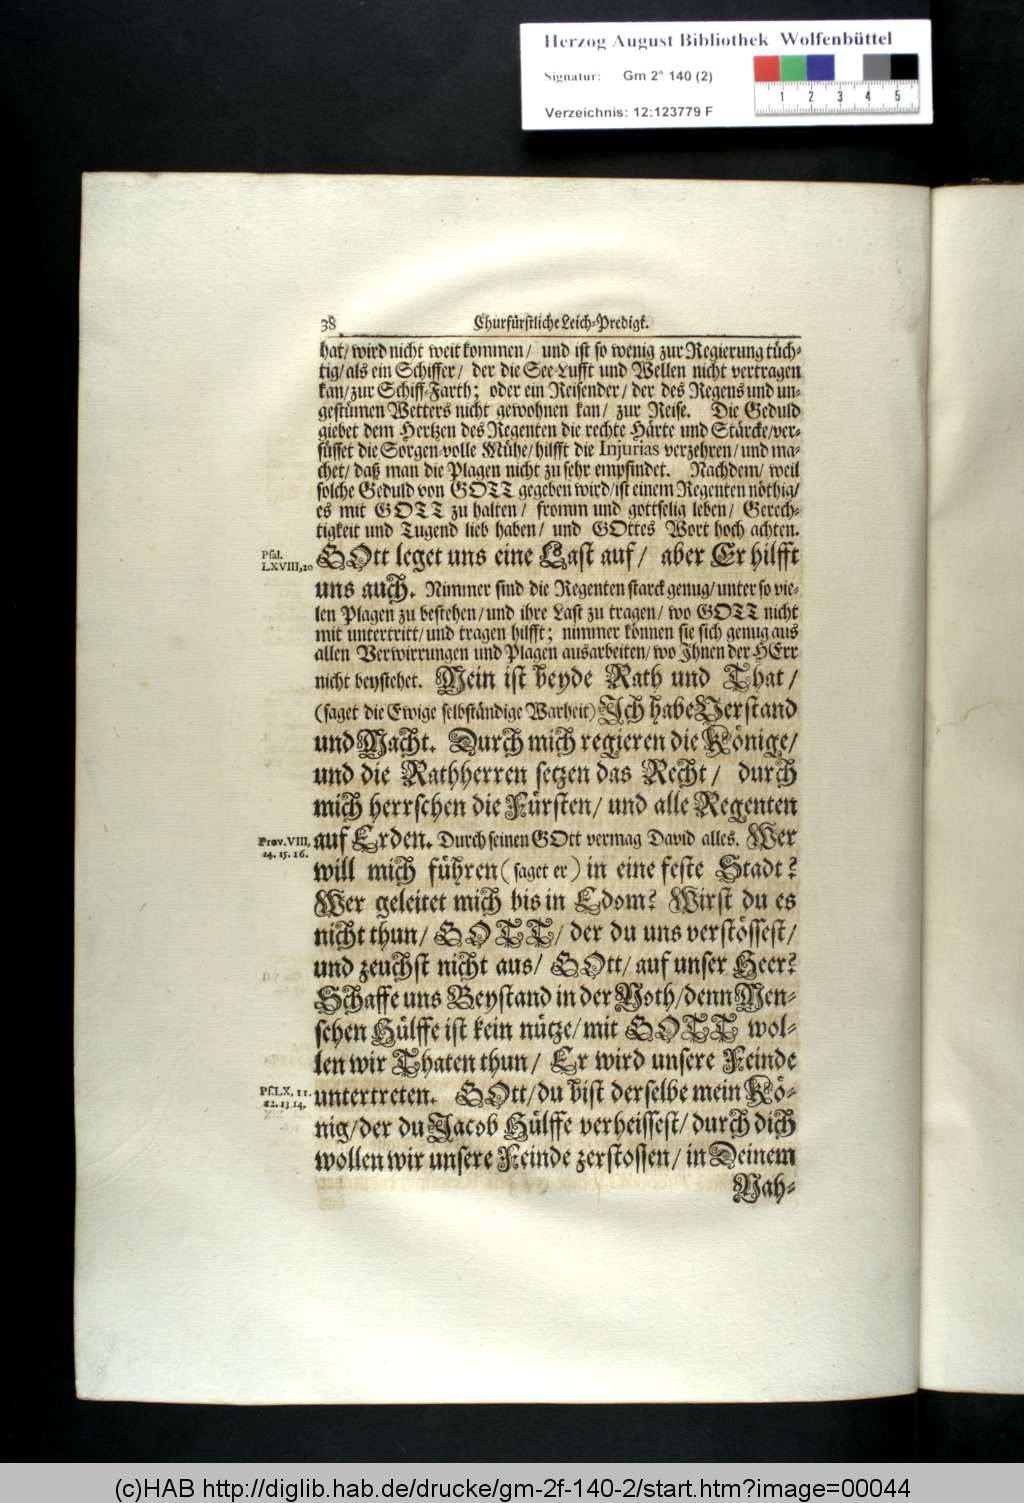 Herzog August Bibliothek Wolfenbüttel
Signatur: Gm 2° 140 (2)
1 2 3 4 5
Verzeichnis: 12:123779 F
38 Churfürstliche Leich-Predigt.
hat/ wird nicht weit kommen/ und ist so wenig zur Regierung tüch-
tig/ als ein Schiffer/ der die See-Lufft und Wellen nicht vertragen
kan/ zur Schiff-Farth; oder ein Reisender/ der des Regens und un-
gestümen Wetters nicht gewohnen kan/ zur Reise. Die Geduld
giebet dem Hertzen des Regenten die rechte Härte und Stärcke/ ver-
süsset die Sorgen-volle Mühe/ hilfft die Injurias verzehren/ und ma-
chet/ daß man die Plagen nicht zu sehr empfindet. Nachdem/ weil
solche Geduld von GOTT gegeben wird/ ist einem Regenten nöthig/
es mit GOTT zu halten/ fromm und gottselig leben/ Gerech-
tigkeit und Tugend lieb haben/ und GOttes Wort hoch achten.
Psal.
LXVIII, 20
GOtt leget uns eine Last auf/ aber Er hilfft
uns auch. Nimmer sind die Regenten starck genug/ unter so vie-
len Plagen zu bestehen/ und ihre Last zu tragen/ wo GOTT nicht
mit untertritt/ und tragen hilfft; nimmer können sie sich genug aus
allen Verwirrungen und Plagen ausarbeiten/ wo Ihnen der HErr
nicht beystehet. Mein ist beyde Rath und That/
(saget die Ewige selbständige Warheit) Ich habe Verstand
und Macht. Durch mich regieren die Könige/
und die Rathherren setzen das Recht/ durch
mich herrschen die Fürsten/ und alle Regenten
Prov. VIII,
14. 15. 16.
auf Erden. Durch seinen GOtt vermag David alles. Wer
will mich führen (saget er) in eine feste Stadt?
Wer geleitet mich bis in Edom? Wirst du es
nicht thun/ GOTT/ der du uns verstössest/
und zeuchst nicht aus/ GOtt/ auf unser Heer?
Schaffe uns Beystand in der Noth/ denn Men-
schen Hülffe ist kein nütze/ mit GOTT wol-
len wir Thaten thun/ Er wird unsere Feinde
Ps. LX, 11.
12. 13. 14.
untertreten. GOtt/ du bist derselbe mein Kö-
nig/ der du Jacob Hülffe verheissest/ durch dich
wollen wir unsere Feinde zerstossen/ in Deinem
Nah-
(c)HAB http://diglib.hab.de/drucke/gm-2f-140-2/start.htm?image=00044